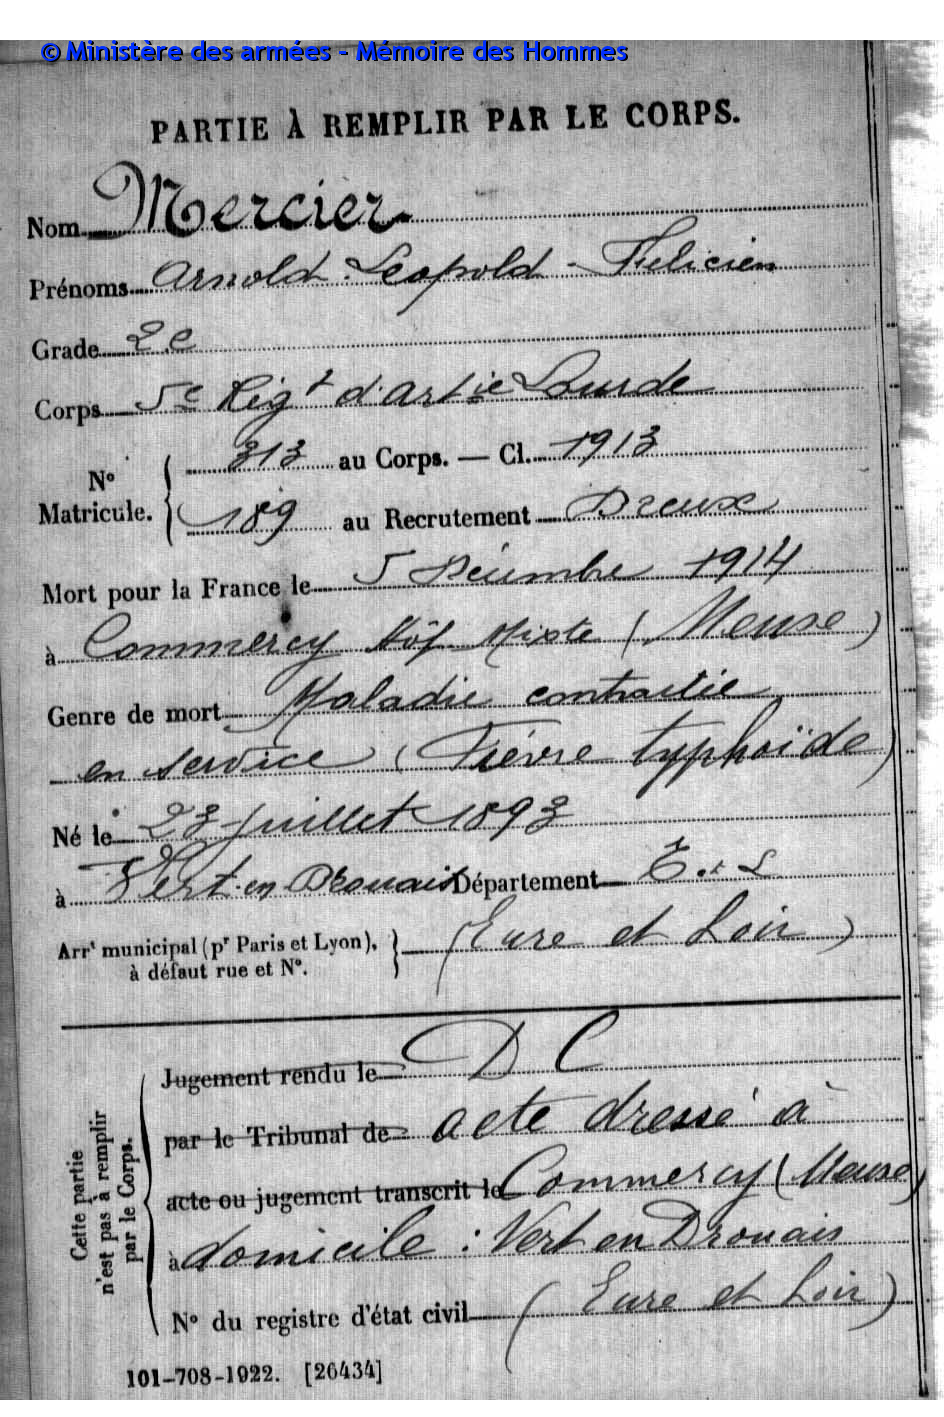 © Ministère des armées - Mémoire des Hommes
PARTIE À REMPLIR PAR LE CORPS.
Nom Mercier
Prénoms Arnold Leopold - Fulicien
Grade 2e
Corps 5e Régt d'Artie Lourde
N° Matricule. { 313 au Corps. — Cl. 1913
189 au Recrutement Dreux
Mort pour la France le 5 Décembre 1914
à Commercy Hôp Mixte (Meuse)
Genre de mort Maladie contractée
en service (Fièvre typhoïde)
Né le 23 juillet 1893
à Vert-en-Drouais Département E. & L
Arrt municipal (pr Paris et Lyon), à défaut rue et N°. } (Eure et Loir)
Cette partie n'est pas à remplir par le Corps.
Jugement rendu le D C
par le Tribunal de acte dressé à
acte ou jugement transcrit le Commercy (Meuse)
à domicile : Vert en Drouais
N° du registre d'état civil (Eure et Loir)
101-708-1922. [26434]